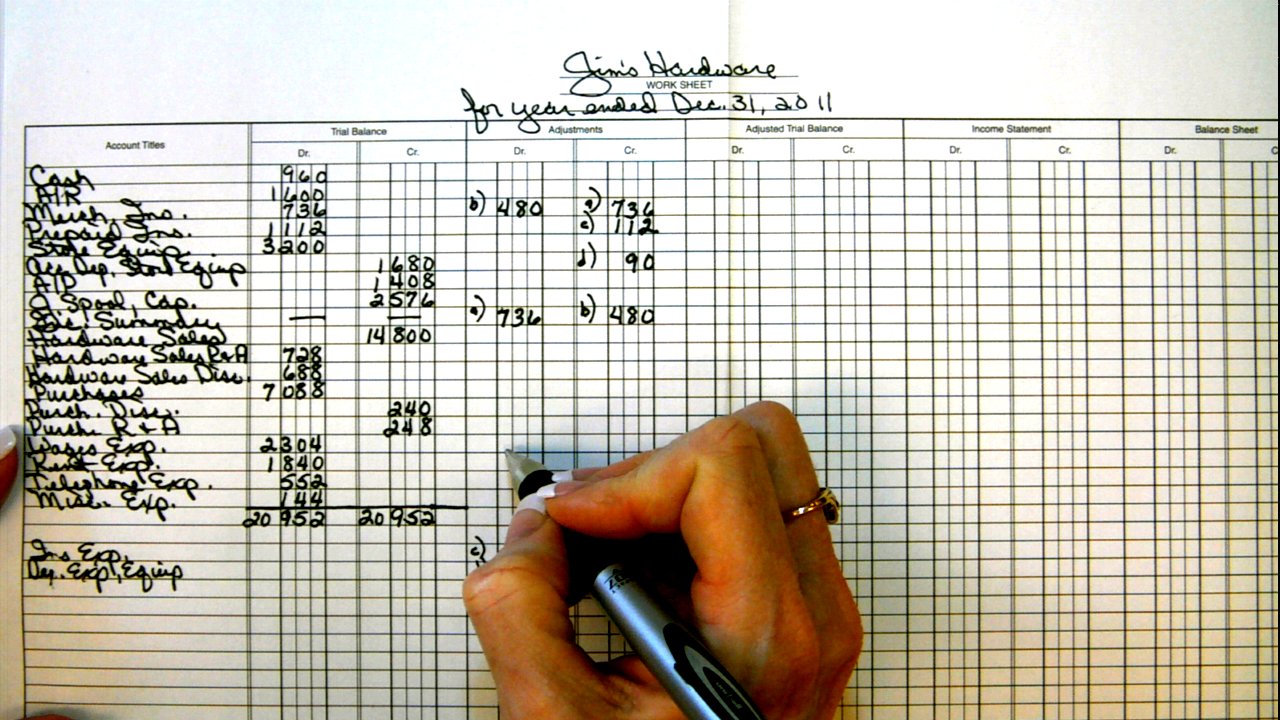 Jim's Hardware
WORK SHEET
for year ended Dec. 31, 2011
Account Titles Trial Balance Adjustments Adjusted Trial Balance Income Statement Balance Sheet
Dr. Cr. Dr. Cr. Dr. Cr. Dr. Cr. Dr. C
Cash 960
A/R 1600
Merch. Ins. 736 b) 480 a) 736
Prepaid Ins. 1112 c) 112
Store Equip. 3200
Acc. Dep., Store Equip 1680 d) 90
A/P 1408
J. Spool, Cap. 2576
Inc. Summary — — a) 736 b) 480
Hardware Sales 14800
Hardware Sales R+A 728
Hardware Sales Disc. 688
Purchases 7088
Purch. Disc. 240
Purch. R + A 248
Wages Exp. 2304
Rent Exp. 1840
Telephone Exp. 552
Misc. Exp. 144
20952 20952
Ins. Exp. c)
Dep. Exp., Equip